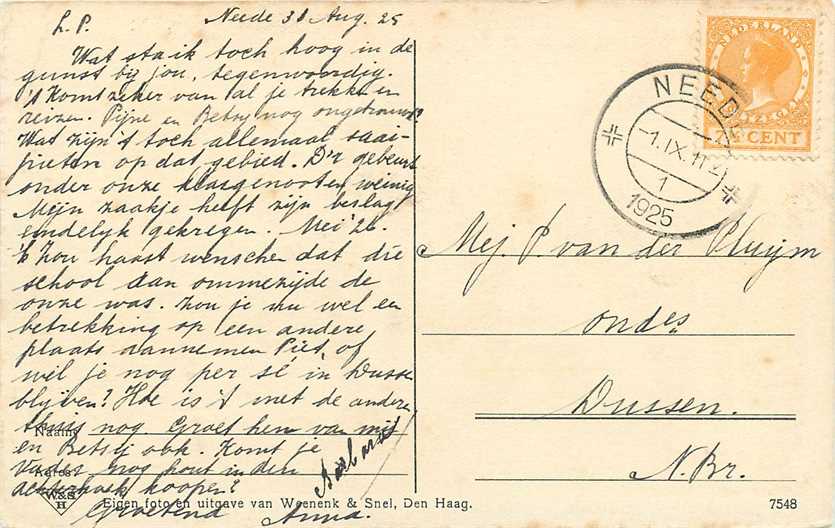 L.P. Neede 31 Aug. 25
Wat sta ik toch hoog in de
gunst bij jou, tegenwoordig.
't Komt zeker van al je trekken en
reizen. Pijne en Betsy nog ongetrouwd?
Wat zijn 't toch allemaal saai-
pieten op dat gebied. D'r gebeurt
onder onze klasgenooten weinig
Mijn zaakje heeft zijn beslag
eindelijk gekregen. Mei '26.
'k Zou haast wenschen dat die
school dan ommezijde de
onze was. Zou je nu wel een
betrekking op een andere
plaats aannemen Piet, of
wil je nog per sé in Dussen
blijven? Hoe is 't met de anderen
thuis nog. Groet hen van mij
en Betsij ook. Komt je
Vader nog hout in den
achterhoek koopen?
Groetend Anna.
Barbara
Naam:
Adres:
W&S
H
Eigen foto en uitgave van Weenenk & Snel, Den Haag.
7548
NEDERLAND
7½ CENT
NEEDE
-1.IX.11
1
1925
Mej. P. van der Pluijm
ondes
Dussen.
N.Br.